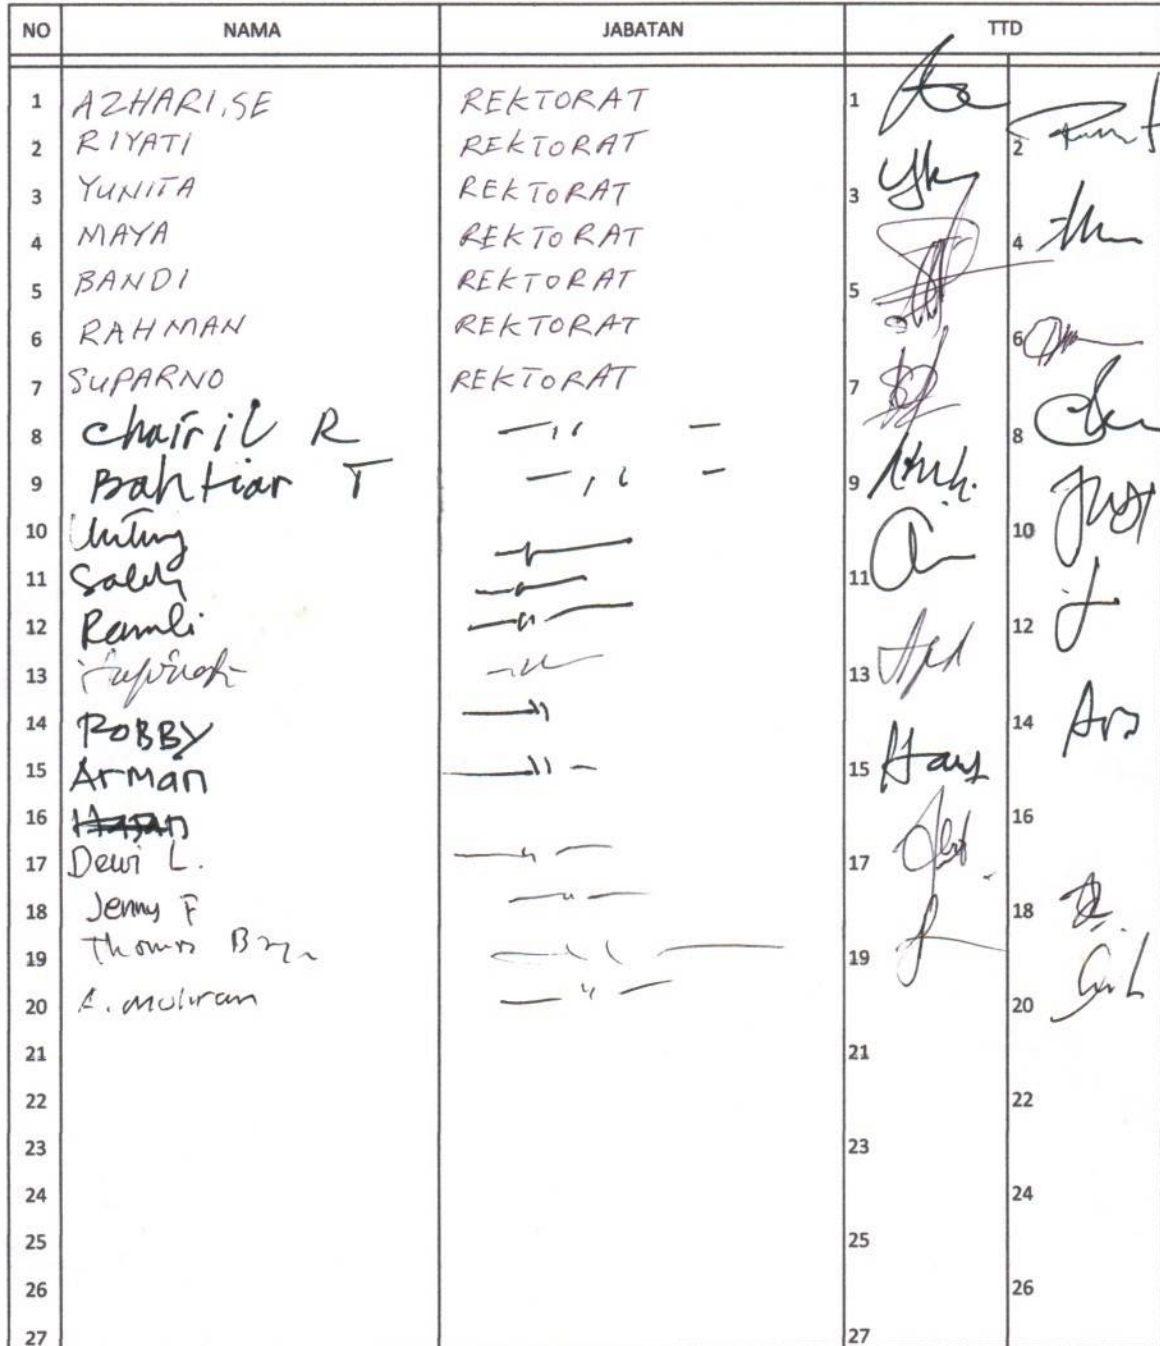 NO NAMA JABATAN TTD
1 AZHARI, SE REKTORAT 1
2 RIYATI REKTORAT 2
3 YUNITA REKTORAT 3
4 MAYA REKTORAT 4
5 BANDI REKTORAT 5
6 RAHMAN REKTORAT 6
7 SUPARNO REKTORAT 7
8 Chairil R — ,, — 8
9 Bahtiar T — ,, — 9
10 10
11 Saleh 11
12 Ramli — " — 12
13 — " — 13
14 ROBBY — " 14
15 Arman — " — 15
16 16
17 Dewi L. — " — 17
18 Jenny F — " — 18
19 Thomas — " — 19
20 — " — 20
21 21
22 22
23 23
24 24
25 25
26 26
27 27